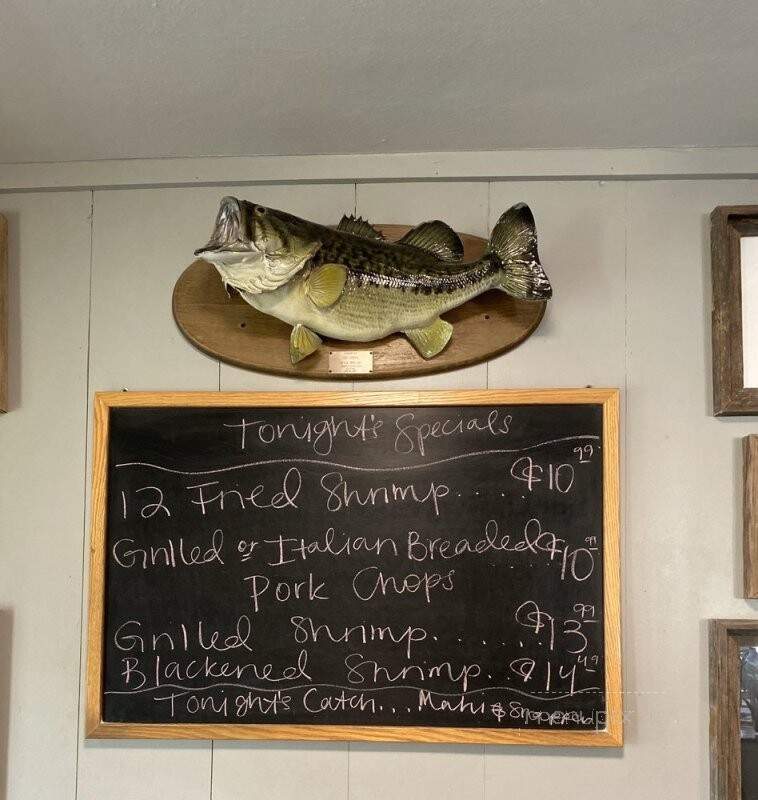 Tonight's Specials
12 Fried Shrimp..... $10.99
Grilled or Italian Breaded $10.99
Pork Chops
Grilled Shrimp....... $13.99
Blackened Shrimp.. $14.49
Tonight's Catch... Mahi &